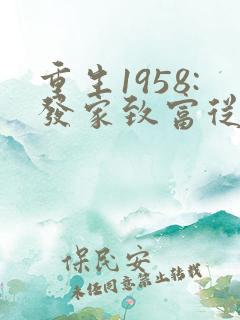 重生1958:
發家致富從
保民安
未经同意禁止转载